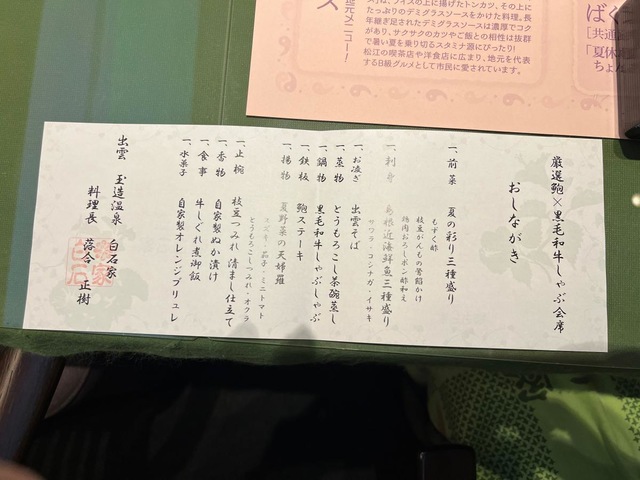 厳選鮑×黒毛和牛しゃぶ会席
おしながき
一、前菜 夏の彩り三種盛り
もずく酢
枝豆がんもの
鶏肉おろしポン酢和え
一、刺身 島根近海鮮魚三種盛り
サワラ・コシナガ・イサキ
一、お凌ぎ 出雲そば
一、蒸物 とうもろこし茶碗蒸し
一、鍋物 黒毛和牛しゃぶしゃぶ
一、鉄板 鮑ステーキ
一、揚物 夏野菜の天婦羅
スズキ・茄子・ミニトマト
とうもろこしつみれ・オクラ
一、止椀 枝豆つみれ 清まし仕立て
一、香物 自家製ぬか漬け
一、食事 牛しぐれ煮御飯
一、水菓子 自家製オレンジブリュレ
出雲 玉造温泉 白石家
料理長 落合 正樹
元メニュー!
ス
ライスの上に揚げたトンカツ、その上に
たっぷりのデミグラスソースをかけた料理。長
年継ぎ足されたデミグラスソースは濃厚でコク
があり、サクサクのカツやご飯との相性は抜群
で暑い夏を乗り切るスタミナ源にぴったり!
松江の喫茶店や洋食店に広まり、地元を代表
するB級グルメとして市民に愛されています。
ばく
[共通
「夏休
ちょん